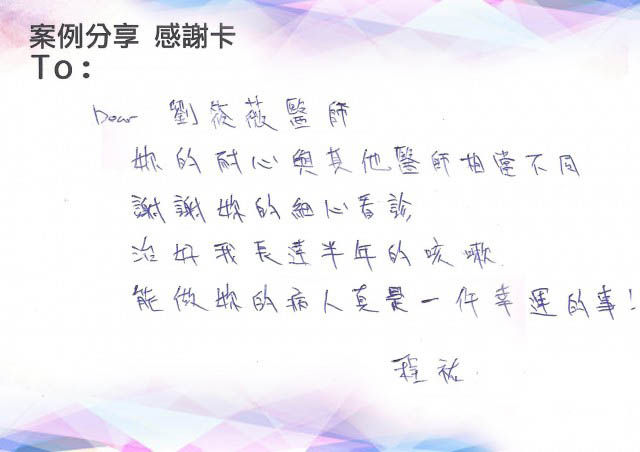 案例分享 感謝卡
To：
Dear 劉筱薇醫師
妳的耐心與其他醫師相當不同
謝謝妳的細心看診
治好我長達半年的咳嗽
能做妳的病人真是一件幸運的事！
程祐